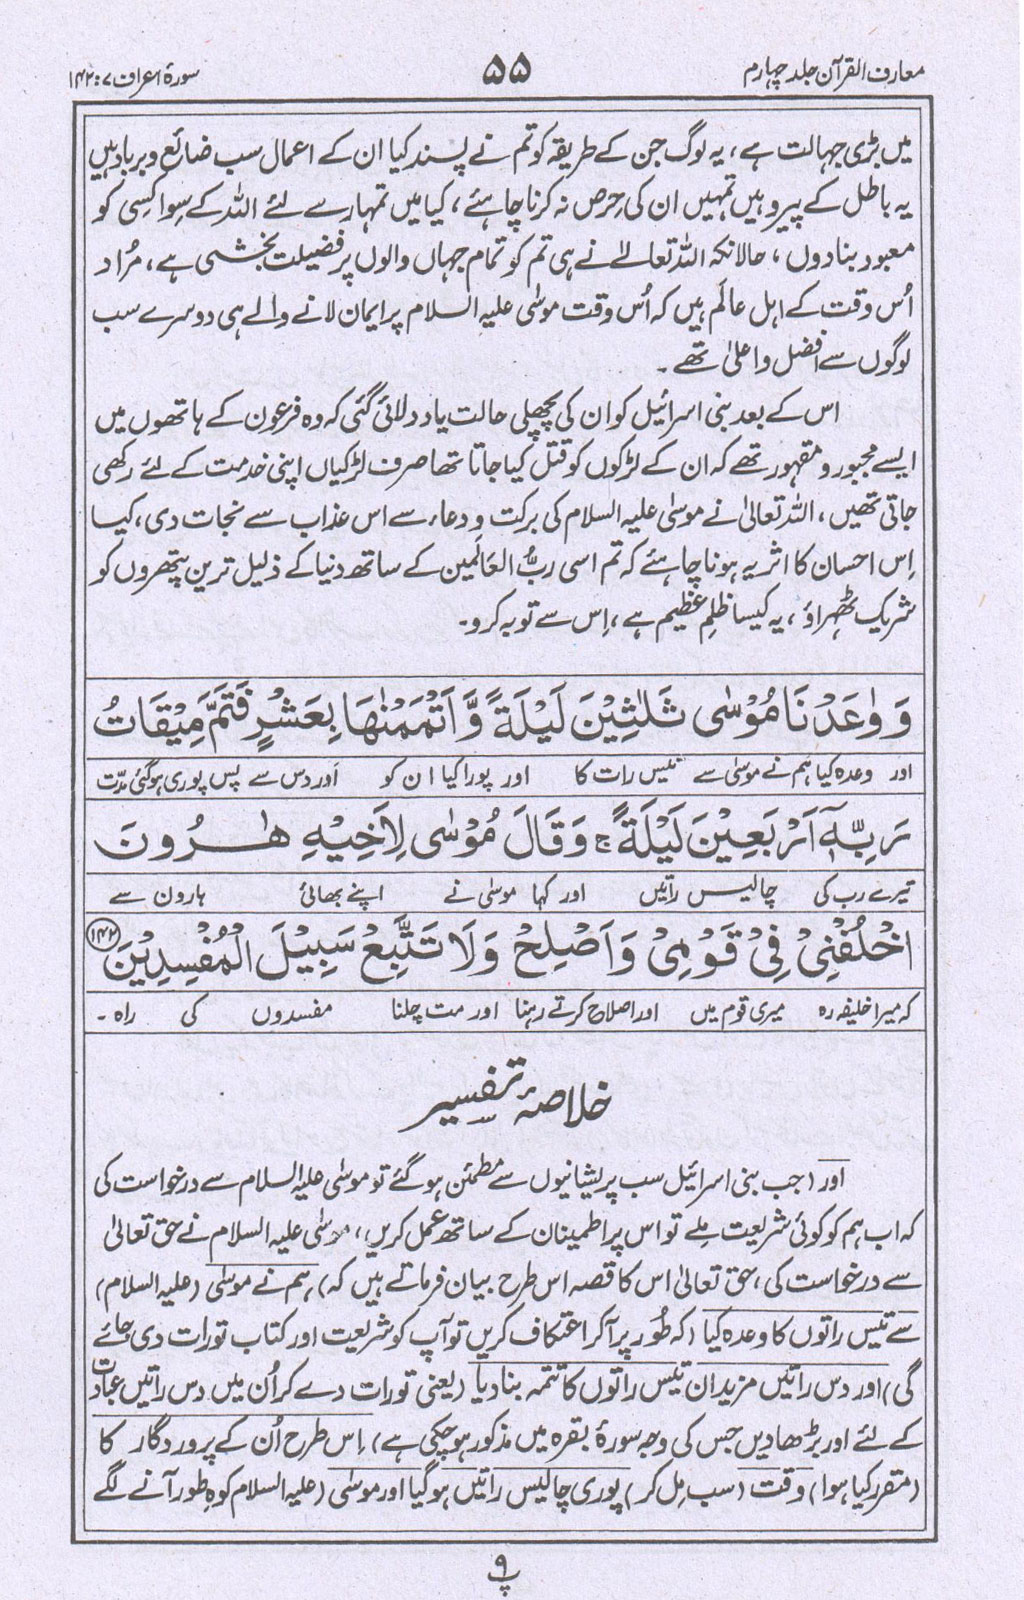 معارف القرآن جلد چہارم
۵۵
سورۂ اعراف ۷: ۱۴۲
میں بڑی جہالت ہے، یہ لوگ جن کے طریقہ کو تم نے پسند کیا ان کے اعمال سب ضائع و برباد ہیں
یہ باطل کے پیرو ہیں تمہیں ان کی حرص نہ کرنا چاہئے، کیا میں تمہارے لئے اللہ کے سوا کسی کو
معبود بنا دوں، حالانکہ اللہ تعالےٰ نے ہی تم کو تمام جہاں والوں پر فضیلت بخشی ہے، مُراد
اُس وقت کے اہل عالَم ہیں کہ اُس وقت موسیٰ علیہ السلام پر ایمان لانے والے ہی دوسرے سب
لوگوں سے افضل و اعلیٰ تھے۔
اس کے بعد بنی اسرائیل کو ان کی پچھلی حالت یاد دلائی گئی کہ وہ فرعون کے ہاتھوں میں
ایسے مجبور و مقہور تھے کہ ان کے لڑکوں کو قتل کیا جاتا تھا صرف لڑکیاں اپنی خدمت کے لئے رکھی
جاتی تھیں، اللہ تعالیٰ نے موسیٰ علیہ السلام کی برکت و دعاء سے اس عذاب سے نجات دی، کیا
اِس احسان کا اثر یہ ہونا چاہئے کہ تم اسی ربُّ العٰلَمین کے ساتھ دنیا کے ذلیل ترین پتھروں کو
شریک ٹھہراؤ، یہ کیسا ظلمِ عظیم ہے، اِس سے توبہ کرو۔
وَوٰعَدْنَا مُوْسٰى ثَلٰثِيْنَ لَيْلَةً وَّاَتْمَمْنٰهَا بِعَشْرٍ فَتَمَّ مِيْقَاتُ
اور وعدہ کیا ہم نے موسیٰ سے تیس رات کا اور پورا کیا ان کو اور دس سے پس پوری ہوگئی مدّت
رَبِّهٖٓ اَرْبَعِيْنَ لَيْلَةً ۚ وَقَالَ مُوْسٰى لِاَخِيْهِ هٰرُوْنَ
تیرے رب کی چالیس راتیں اور کہا موسیٰ نے اپنے بھائی ہارون سے
اخْلُفْنِيْ فِيْ قَوْمِيْ وَاَصْلِحْ وَلَا تَتَّبِعْ سَبِيْلَ الْمُفْسِدِيْنَ ۝۱۴۲
کہ میرا خلیفہ رہ میری قوم میں اور اصلاح کرتے رہنا اور مت چلنا مفسدوں کی راہ۔
خلاصۂ تفسیر
اور (جب بنی اسرائیل سب پریشانیوں سے مطمئن ہو گئے تو موسیٰ علیہ السلام سے درخواست کی
کہ اب ہم کو کوئی شریعت ملے تو اس پر اطمینان کے ساتھ عمل کریں، موسیٰ علیہ السلام نے حق تعالیٰ
سے درخواست کی، حق تعالیٰ اس کا قصہ اس طرح بیان فرماتے ہیں کہ) ہم نے موسیٰ (علیہ السلام)
سے تیس راتوں کا وعدہ کیا (کہ طُور پر آکر اعتکاف کریں تو آپ کو شریعت اور کتاب تورات دی جائے
گی) اور دس راتیں مزید ان تیس راتوں کا تتمہ بنا دیا (یعنی تورات دے کر اُن میں دس راتیں عبادت
کے لئے اور بڑھا دیں جس کی وجہ سورۂ بقرہ میں مذکور ہو چکی ہے) اِس طرح اُن کے پروردگار کا
(مقرر کیا ہوا) وقت (سب مِل کر) پوری چالیس راتیں ہو گیا اور موسیٰ (علیہ السلام کوہِ طور آنے لگے
۹
پ